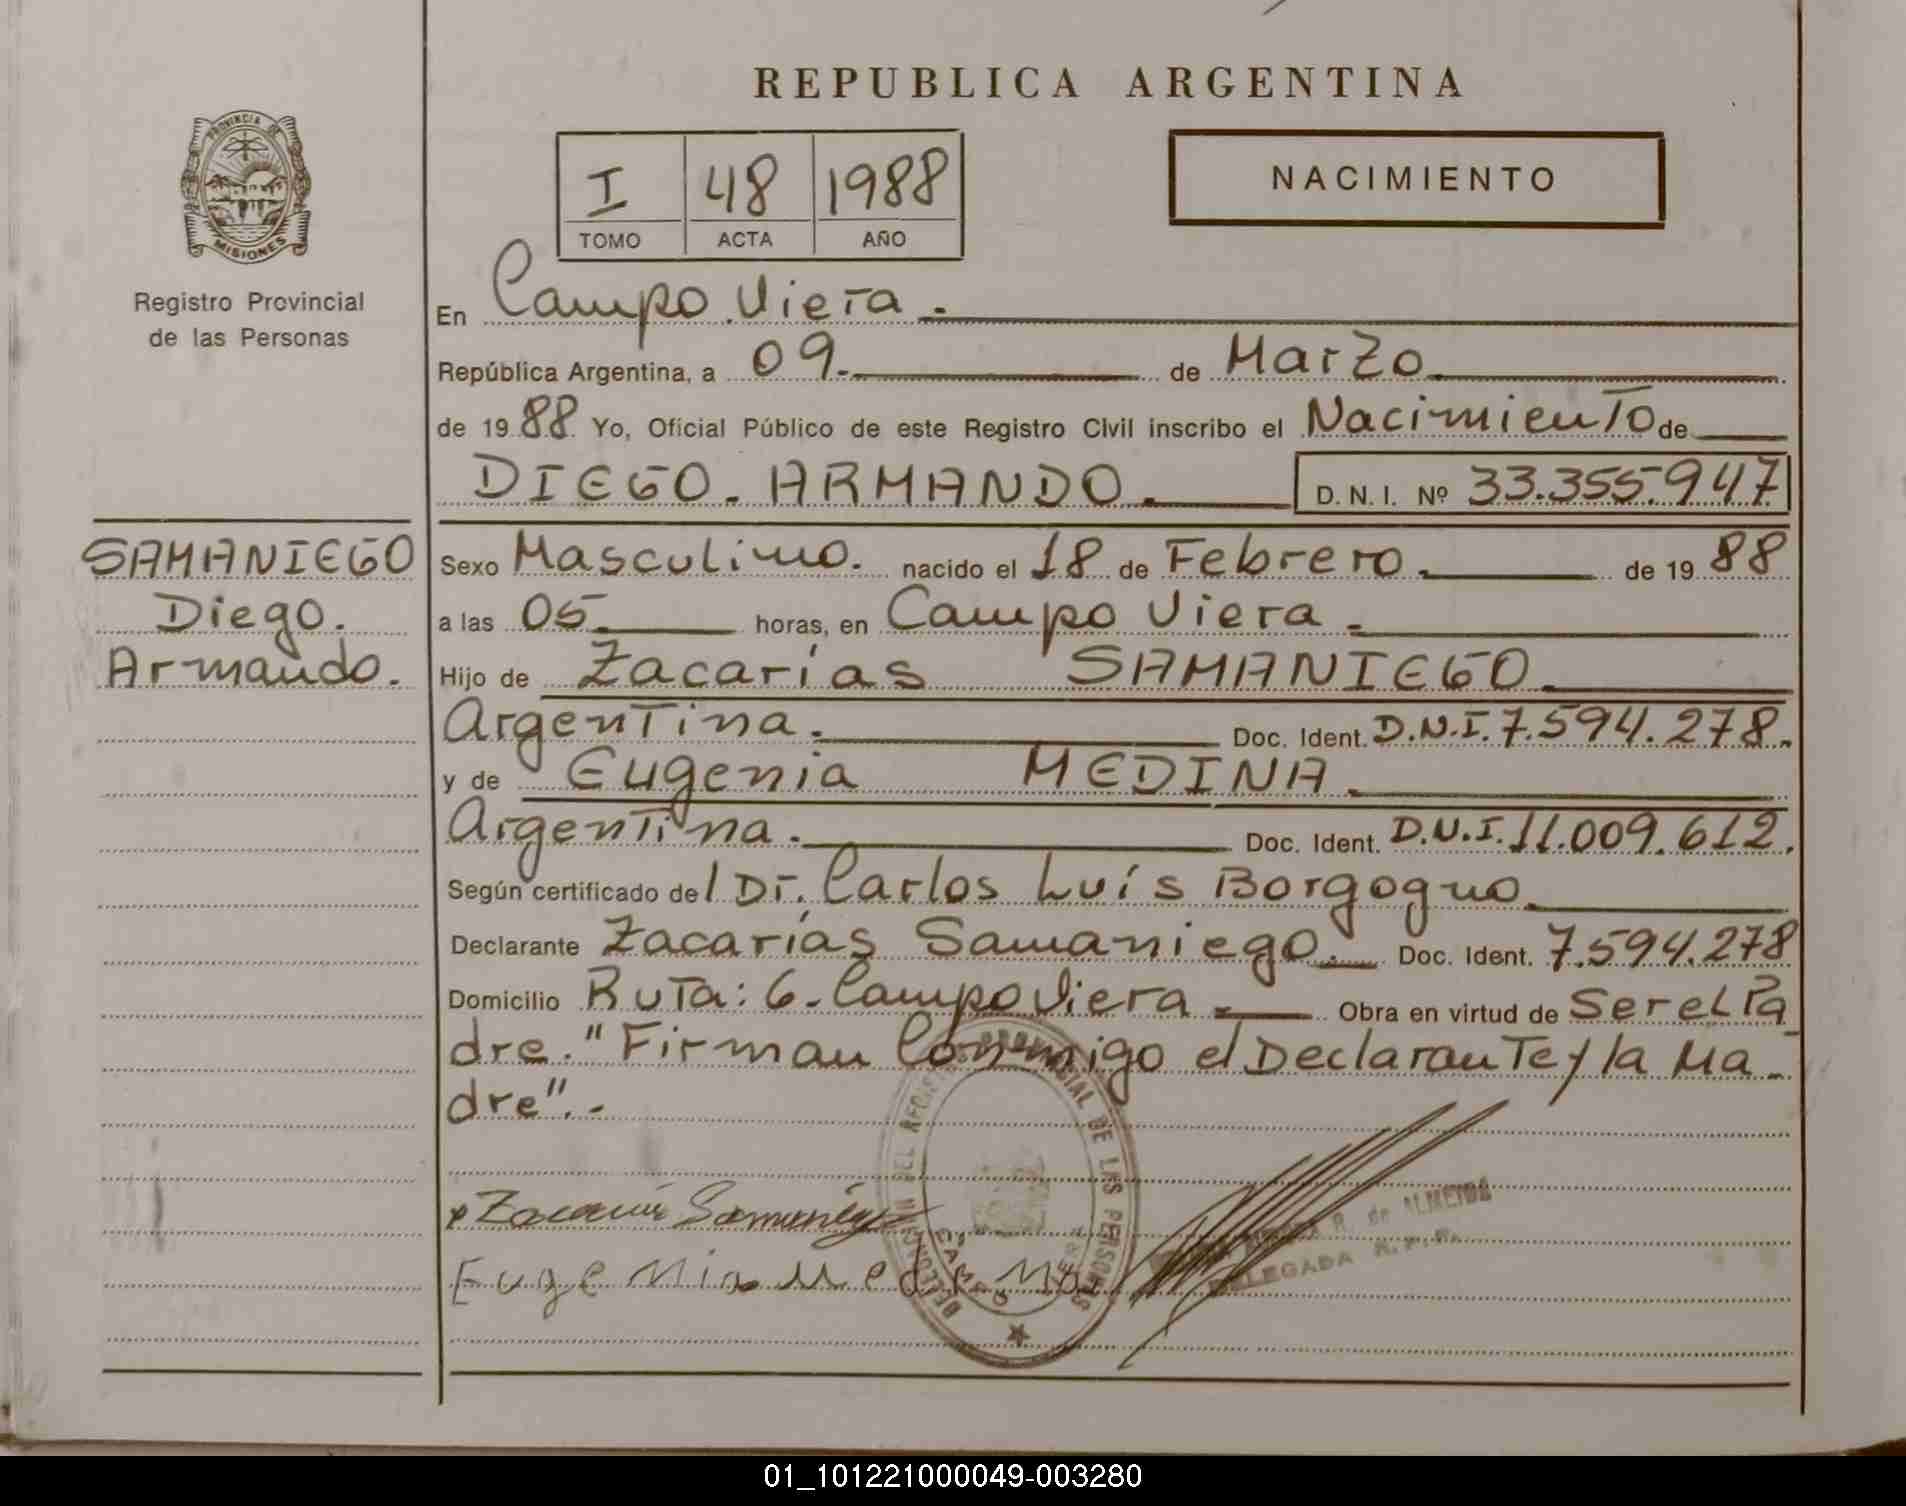 REPUBLICA ARGENTINA
PROVINCIA DE
MISIONES
Registro Provincial
de las Personas
I 48 1988
TOMO ACTA AÑO
NACIMIENTO
En Campo Viera.
República Argentina, a 09. de Marzo
de 1988 Yo, Oficial Público de este Registro Civil inscribo el Nacimiento de
DIEGO. ARMANDO. D. N. I. Nº 33.355.947
SAMANIEGO
Diego.
Armando.
Sexo Masculino. nacido el 18 de Febrero. de 1988
a las 05. horas, en Campo Viera.
Hijo de Zacarías SAMANIEGO.
Argentina. Doc. Ident. D.N.I. 7.594.278.
y de Eugenia MEDINA.
Argentina. Doc. Ident. D.N.I. 11.009.612.
Según certificado del Dr. Carlos Luís Borgogno.
Declarante Zacarías Samaniego. Doc. Ident. 7.594.278
Domicilio Ruta: 6. Campo Viera. Obra en virtud de Ser el Pa
dre. "Firman Conmigo el Declarante y la Ma-
dre".-
DELEGACION DEL REGISTRO PROVINCIAL DE LAS PERSONAS
CAMPO VIERA
Zacarias Samaniego
Eugenia Medina
R. de ALMEIDA
DELEGADA R.P.P.
01_101221000049-003280